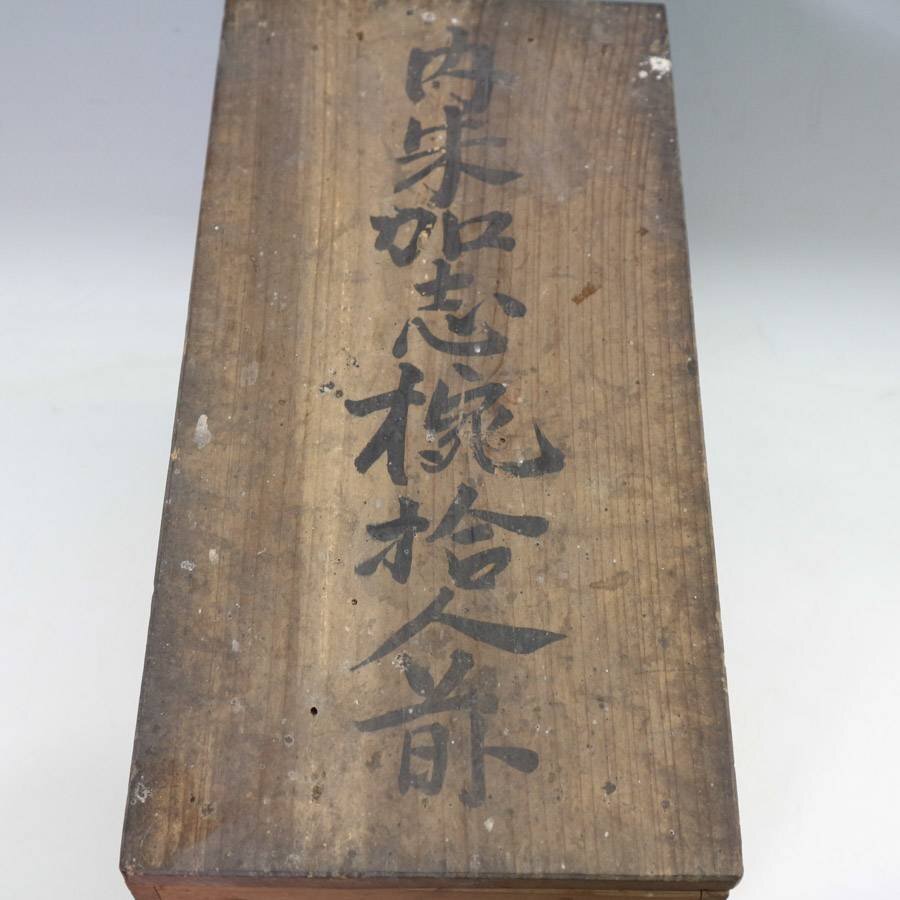 内朱加志椀拾人前